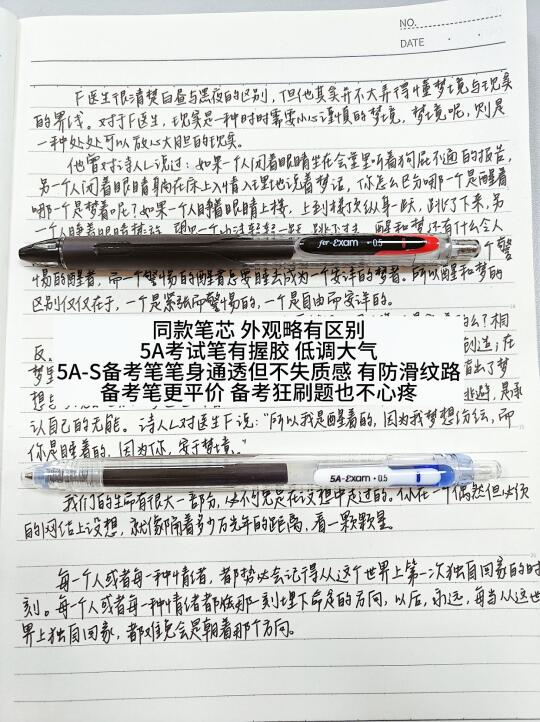 NO.
DATE
F医生很清楚白昼与黑夜的区别，但他其实并不太弄得懂梦境与现实
的界线。对于F医生，现实是一种时时需要小心谨慎的梦境，梦境呢，则是
一种处处可以放心大胆的现实。
他曾对诗人L说过：如果一个人闭着眼睛坐在会堂里听着狗屁不通的报告，
另一个人闭着眼睛躺在床上入情入理地说着梦话，你怎么区分哪一个是醒着
哪一个是梦着呢？如果一个人睁着眼睛上楼，上到楼顶纵身一跃，跳了下来，另
一个人睁着眼睛
醒和梦还有什么令人
for-Exam 0.5
个警
惕的醒者，而一个警惕的醒者怎要睡去成为一个安详的梦者。所以醒和梦的
区别仅仅在于，一个是紧张而警惕的，一个是自由而安详的。
么？相
同款笔芯 外观略有区别
反。
5A考试笔有握胶 低调大气
创造；在
梦里
5A-S备考笔笔身通透但不失质感 有防滑纹路
出了梦
想
备考笔更平价 备考狂刷题也不心疼
逃避，是承
认自己的无能。诗人L对医生F说：“所以我是醒着的，因为我梦想纷纭，而
你是睡着的，因为你，安于梦境。”
5A-Exam 0.5
我们的生命有很大一部分，必不可免是在设想中走过的。你在一个偶然但必须
的网结上设想，就像隔着多少万光年的距离，看一颗颗星。
每一个人或者每一种情绪，都势必会记得从这个世界上第一次独自回家的时
刻。每个人或者每一种情绪都在那一刻埋下命定的方向，以后，永远，每当从这世
界上独自回家，都难免会是朝着那个方向。